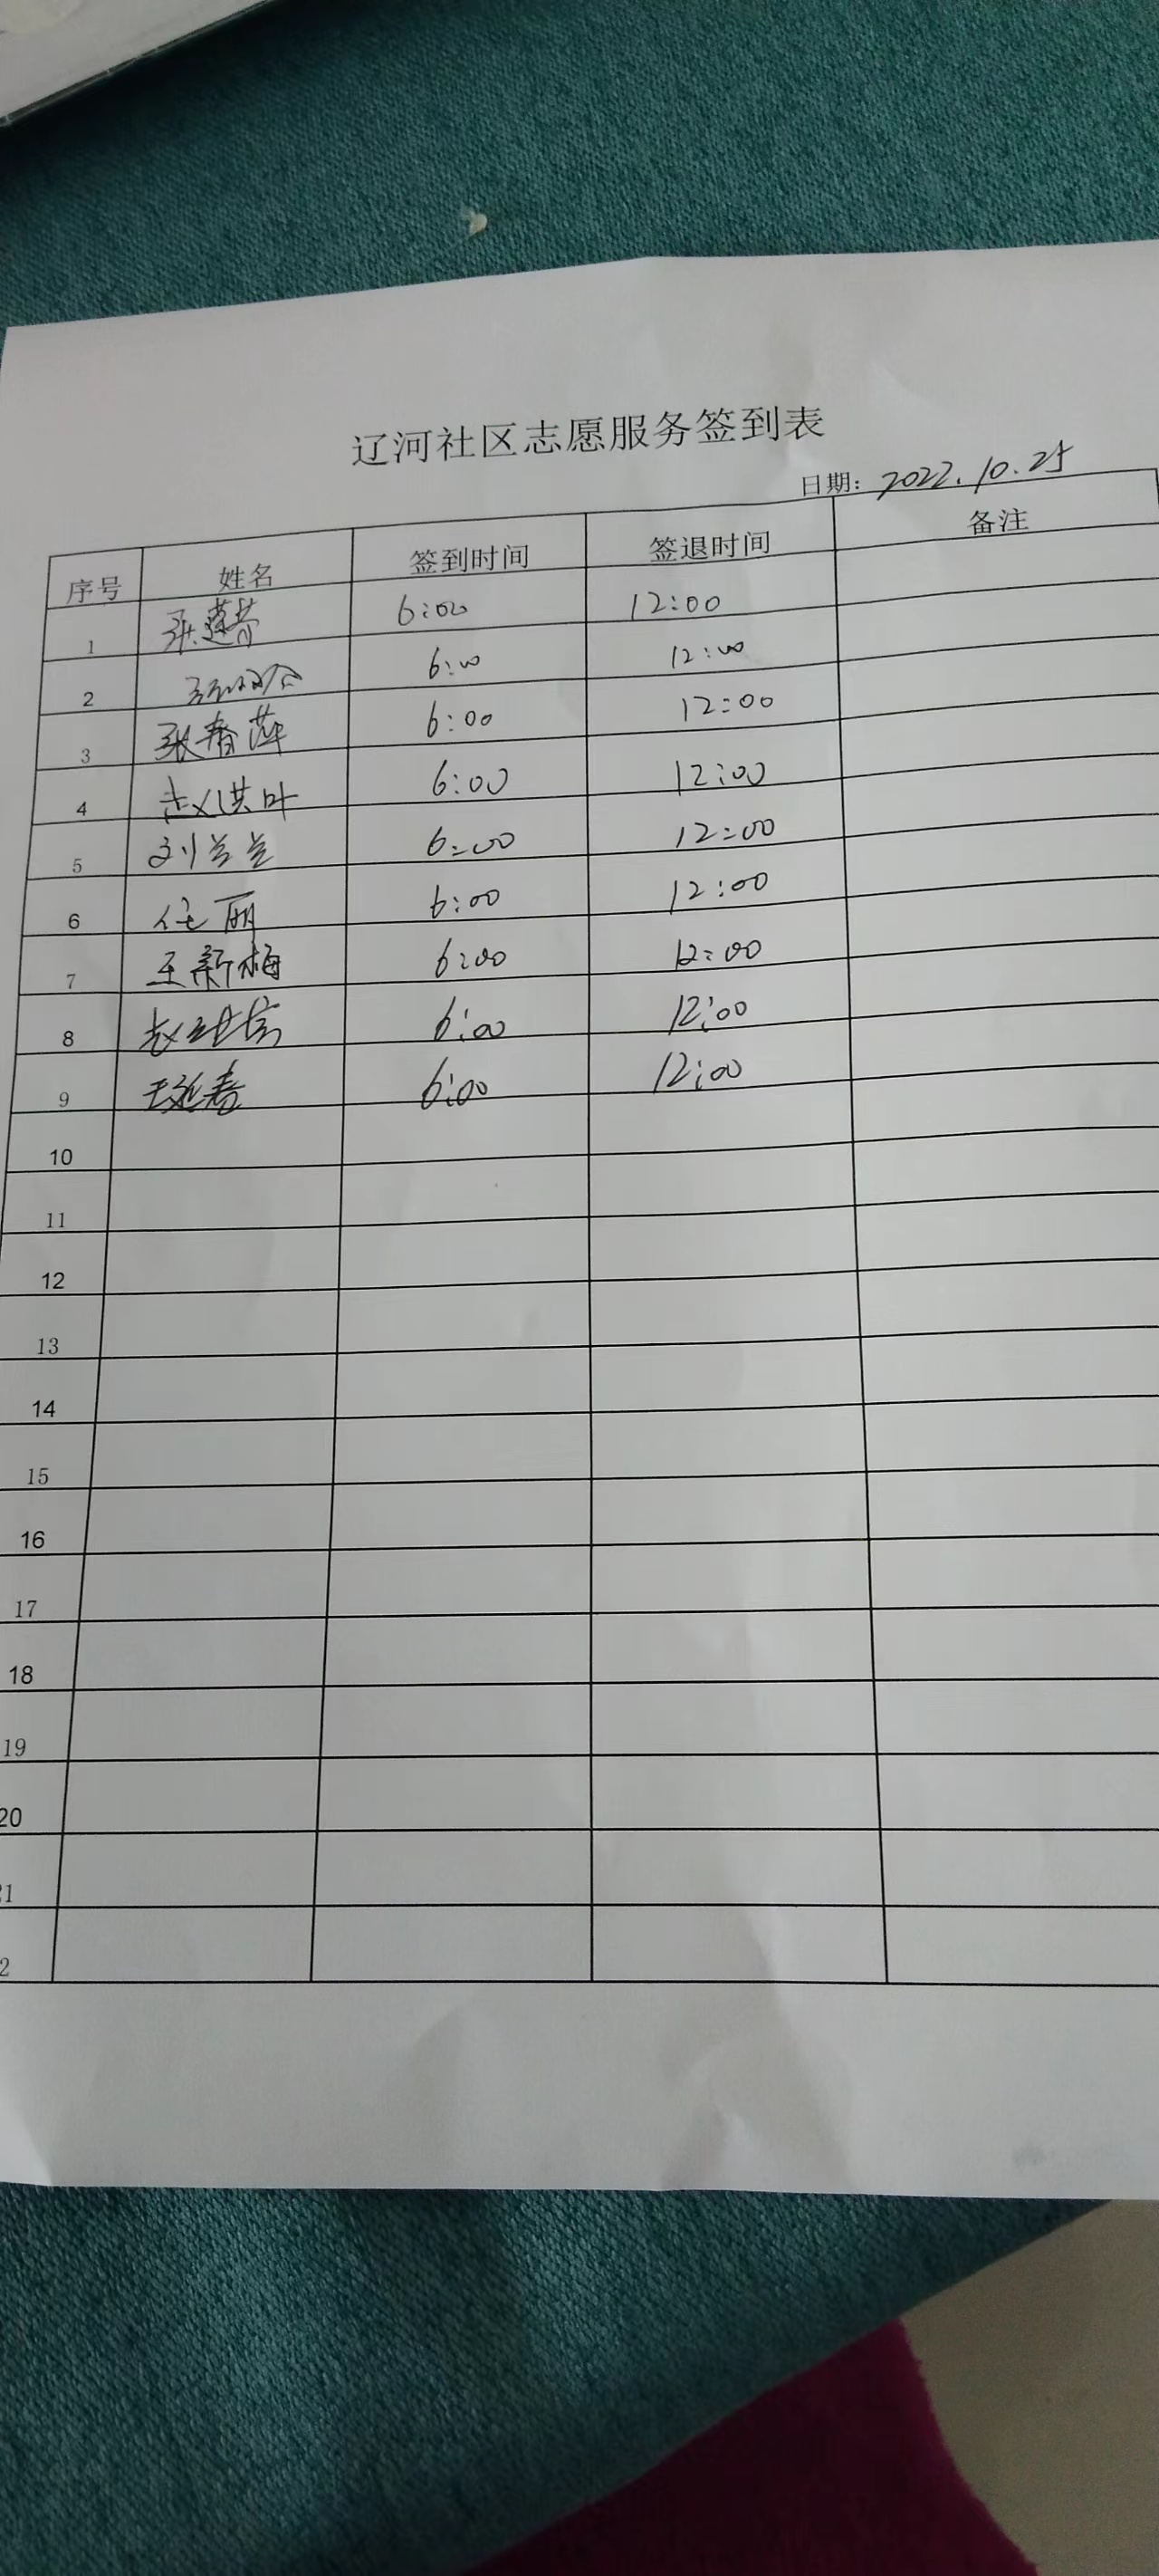 辽河社区志愿服务签到表
日期: 2022.10.25
序号 姓名 签到时间 签退时间 备注
1 张莲芬 6:00 12:00
2 6:00 12:00
3 张春萍 6:00 12:00
4 赵洪叶 6:00 12:00
5 刘兰兰 6:00 12:00
6 任丽 6:00 12:00
7 王新梅 6:00 12:00
8 赵 6:00 12:00
9 王延春 6:00 12:00
10
11
12
13
14
15
16
17
18
19
20
21
2